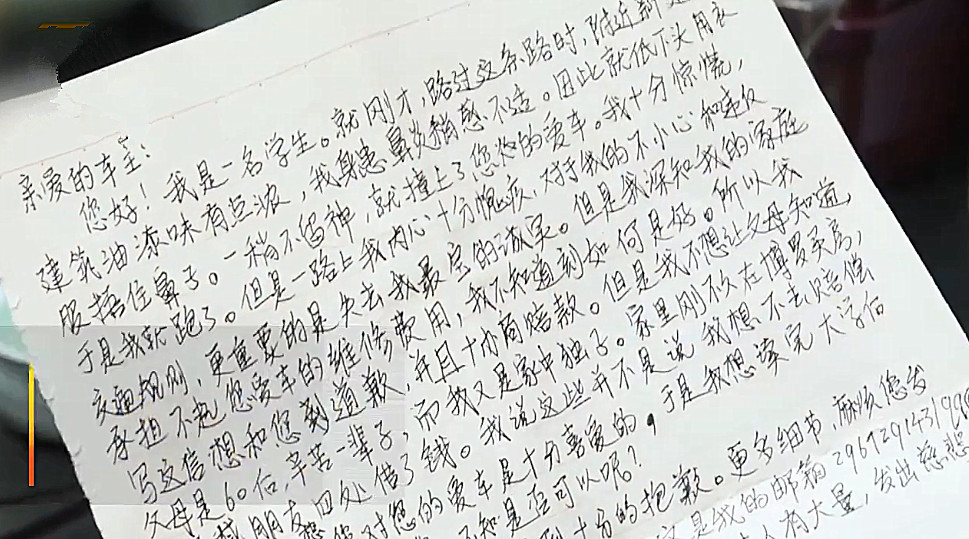 亲爱的车主:
您好!我是一名学生。就刚才,路过这条路时,附近新建
建筑油漆味有点浓,我身患鼻炎稍感不适。因此就低下头用衣
服捂住鼻子。一稍不留神,就撞上了您的爱车。我十分惊慌,
于是我就跑了。但是一路上我内心十分愧疚,对于我的不小心和违反
交通规则,更重要的是失去我最宝的诚实。但是我深知我的家庭
承担不起您爱车的维修费用,我不知道到如何是好。所以我
写这信想和您到道歉,并且协商赔款。但是我不想让父母知道,
父母是60后,辛苦一辈子,而我又是家中独子。家里刚不久在博罗买房,
朋友四处借了钱。我说这些并不是说我想不去赔偿
您对您的爱车是十分喜爱的,于是我想读完大学后
不知是否可以呢?
十分的抱歉。更多细节,麻烦您发
这是我的邮箱
人有大量,发出慈悲